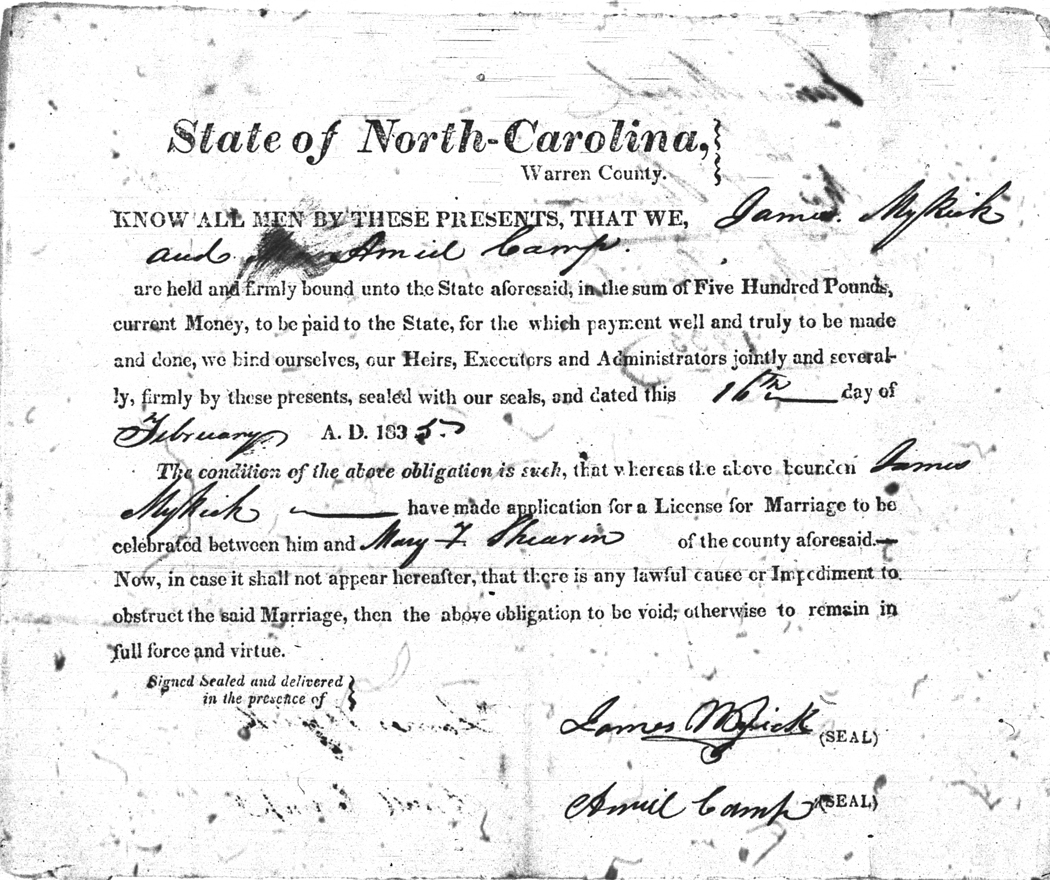 State of North-Carolina,
Warren County.
KNOW ALL MEN BY THESE PRESENTS, THAT WE, James MyRick
and Amiel Camp.
are held and firmly bound unto the State aforesaid, in the sum of Five Hundred Pounds,
current Money, to be paid to the State, for the which payment well and truly to be made
and done, we bind ourselves, our Heirs, Executors and Administrators jointly and several-
ly, firmly by these presents, sealed with our seals, and dated this 16th day of
February A. D. 1835
The condition of the above obligation is such, that whereas the above bounden James
MyRick have made application for a License for Marriage to be
celebrated between him and Mary F. Shearin of the county aforesaid.—
Now, in case it shall not appear hereafter, that there is any lawful cause or Impediment to
obstruct the said Marriage, then the above obligation to be void; otherwise to remain in
full force and virtue.
Signed Sealed and delivered
in the presence of
James Myrick (SEAL)
Amiel Camp (SEAL)